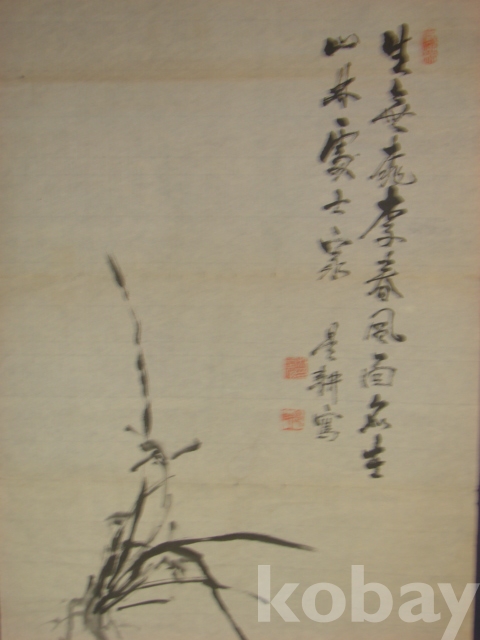 生無桃李春風面名在
山林處士家
星耕寫
kobay